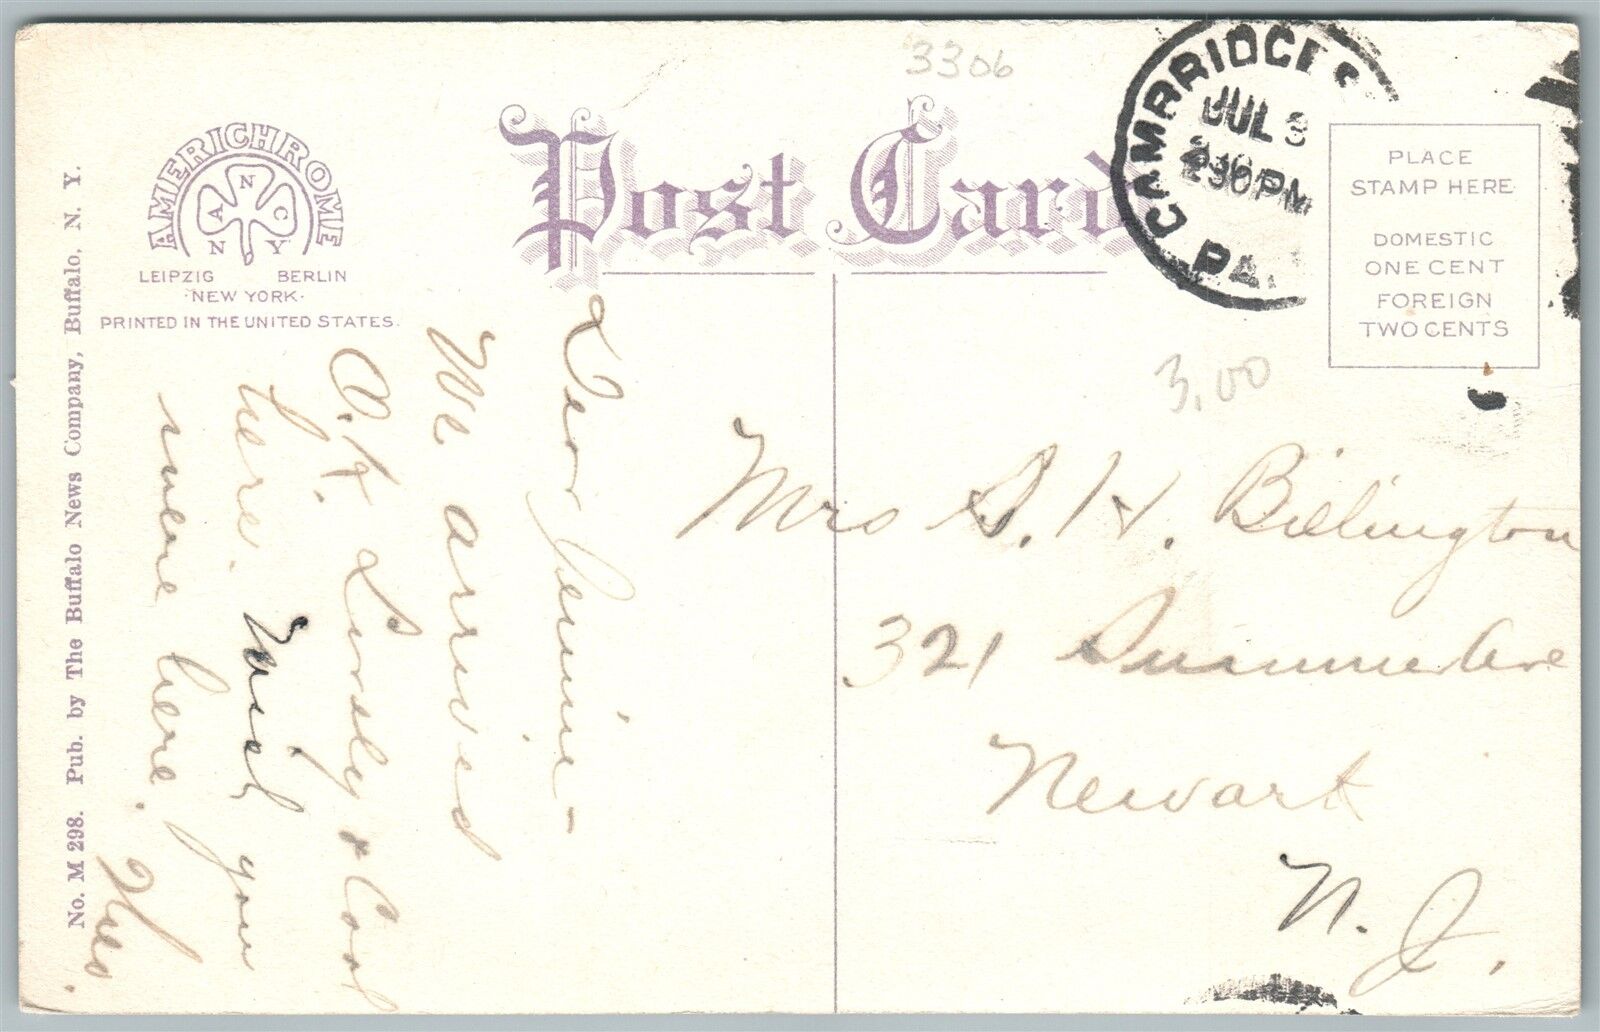 3306
Post Card
CAMBRIDGE S
JUL 3
230 PM
PA.
PLACE
STAMP HERE
DOMESTIC
ONE CENT
FOREIGN
TWO CENTS
AMERICHROME
A N C
N Y
LEIPZIG BERLIN
NEW YORK.
PRINTED IN THE UNITED STATES.
No. M 298. Pub. by The Buffalo News Company, Buffalo, N. Y.
3.00
Dear Jennie –
We arrived
O.K. Lovely & Cool
here. Wish you
were here.
Mrs S. H. Billington
321 Summer Ave
Newark
N. J.